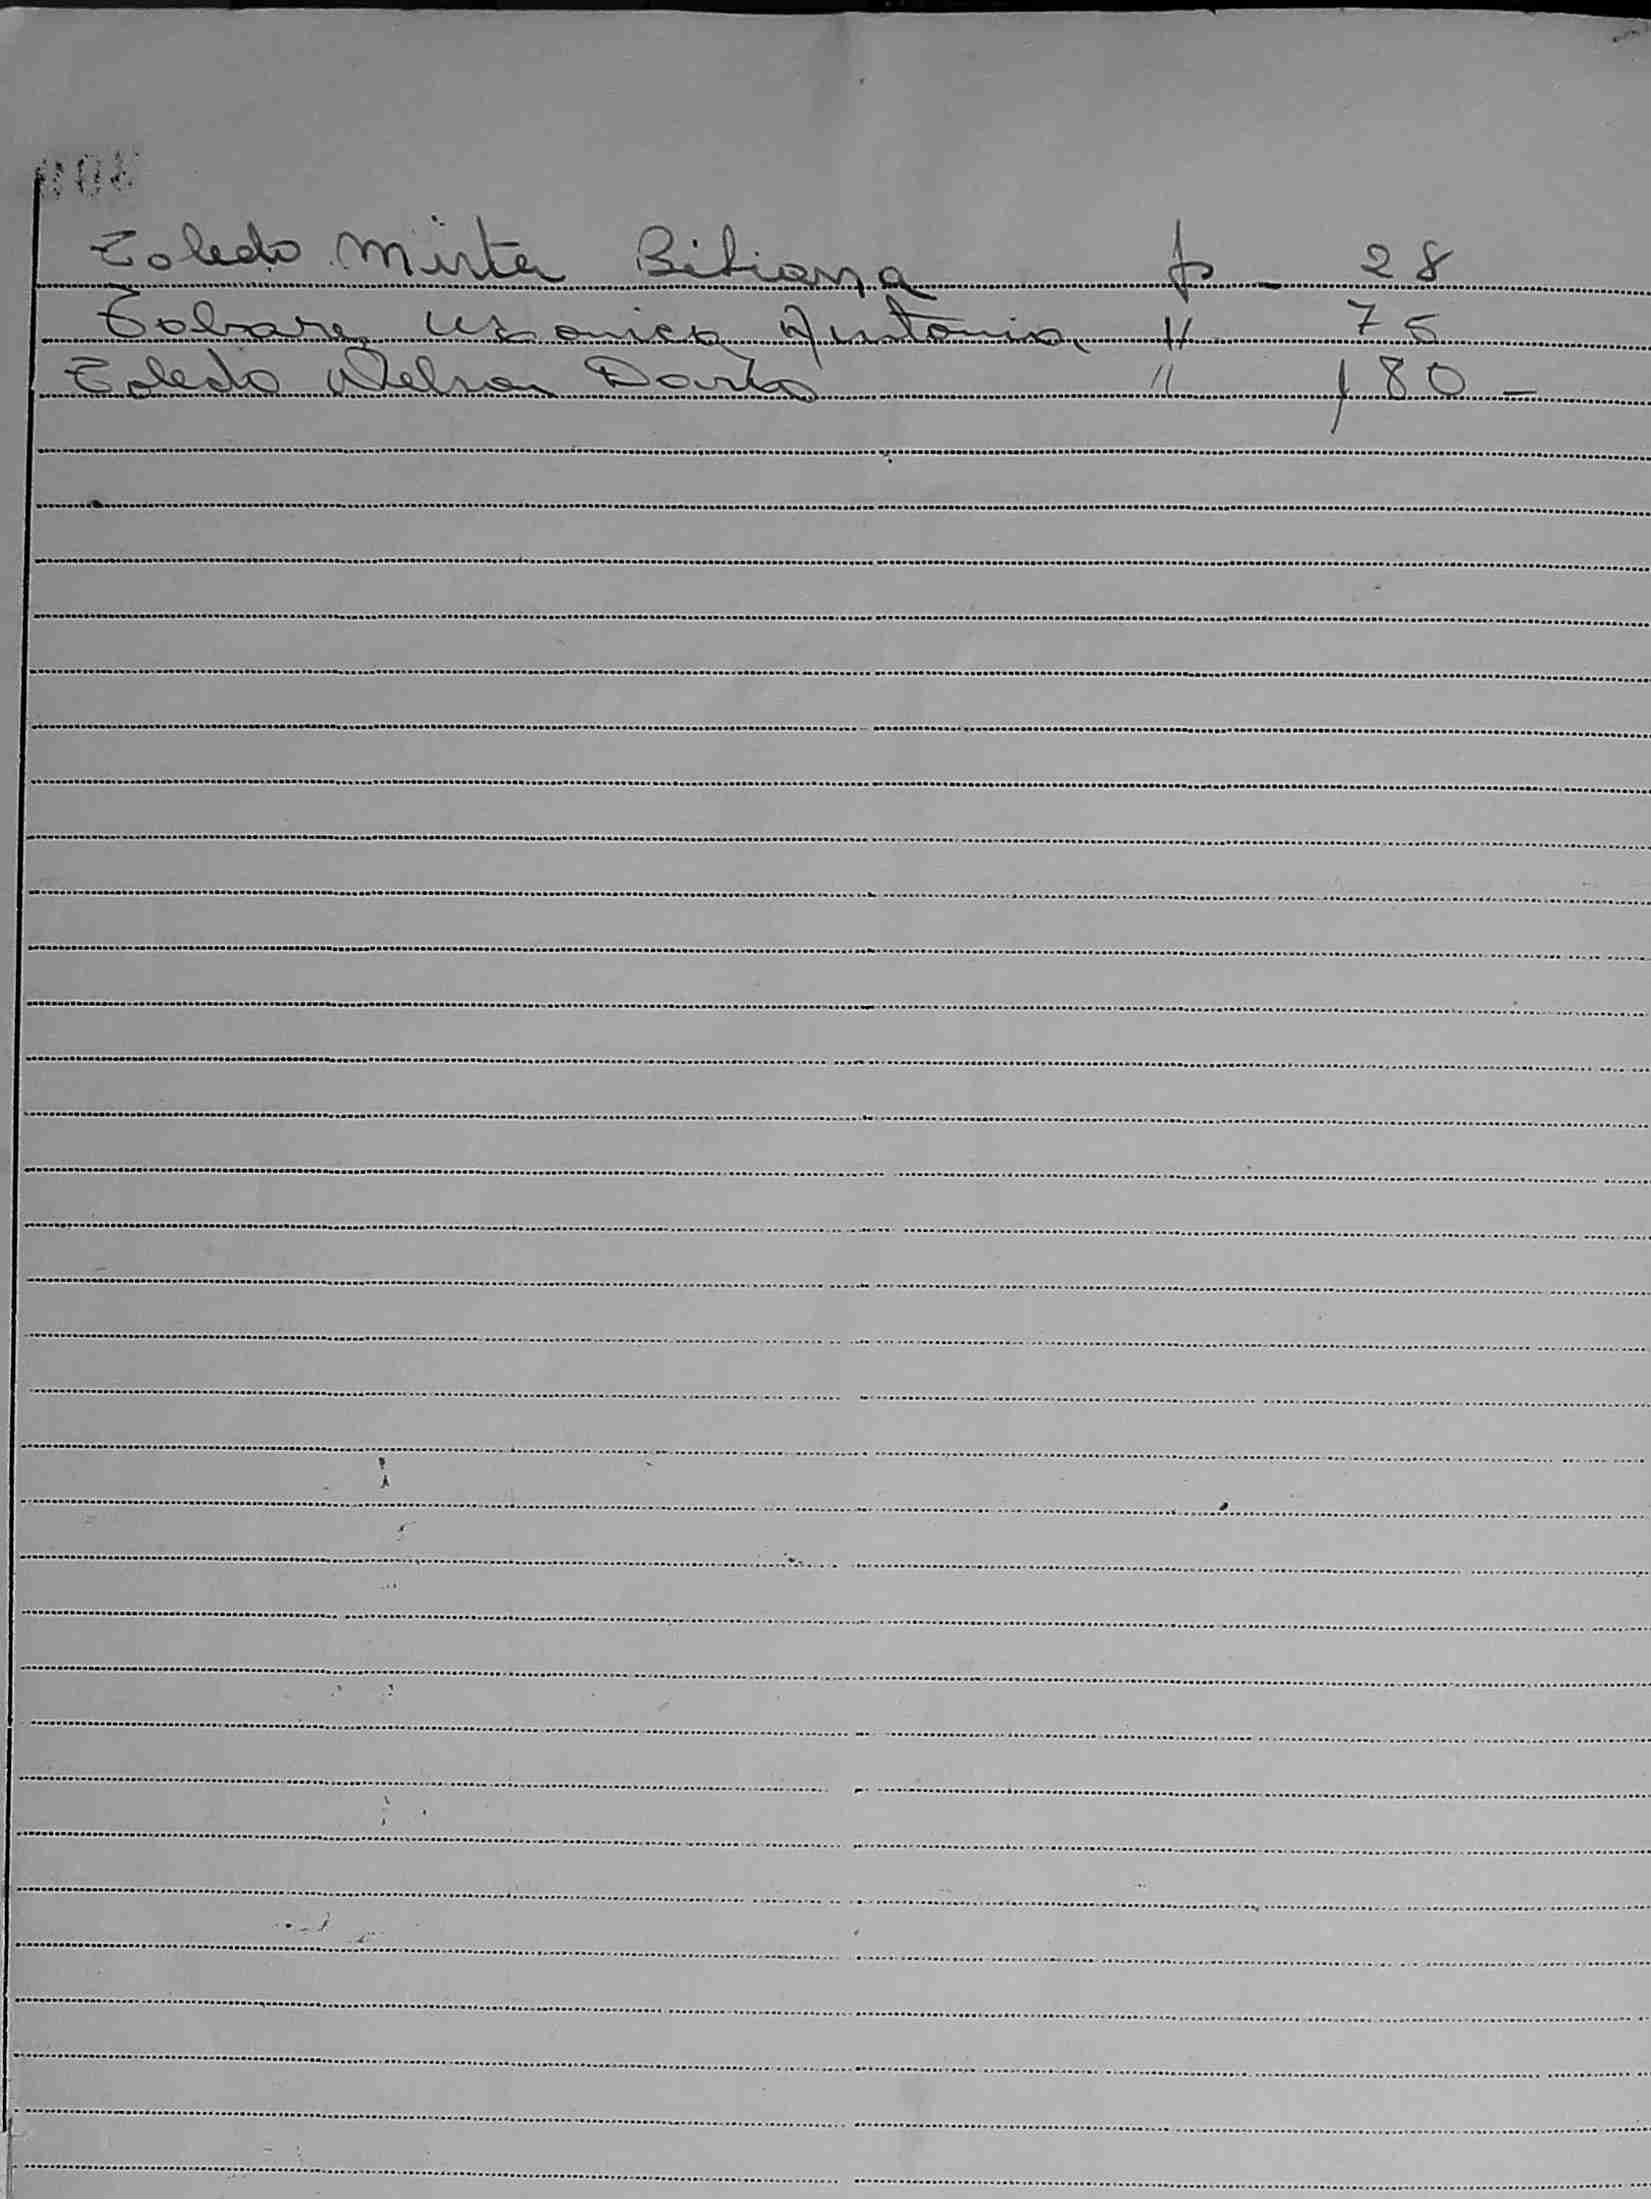 Toledo Mirta Bibiana fs - 28
Tobares Veronica Antonia " 75
Toledo Nelson Dario " 180 -